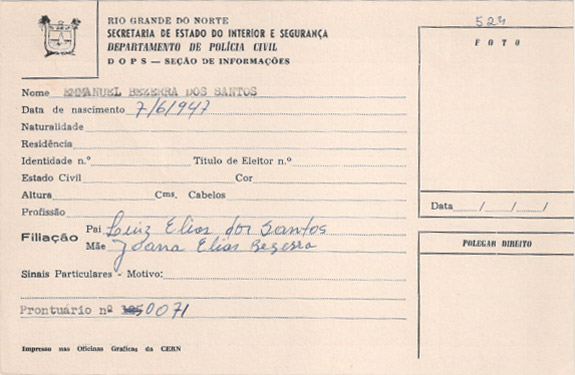 RIO GRANDE DO NORTE
SECRETARIA DE ESTADO DO INTERIOR E SEGURANÇA
DEPARTAMENTO DE POLÍCIA CIVIL
D O P S — SEÇÃO DE INFORMAÇÕES
523
F O T O
Nome EMMANUEL BEZERRA DOS SANTOS
Data de nascimento 7/6/1947
Naturalidade
Residência
Identidade n.º Titulo de Eleitor n.º
Estado Civil Cor
Altura Cms. Cabelos
Profissão
Data / / /
Filiação
Pai Luiz Elias dos Santos
Mãe Joana Elias Bezerra
POLEGAR DIREITO
Sinais Particulares - Motivo:
Prontuário nº 0071
Impresso nas Oficinas Graficas da CERN